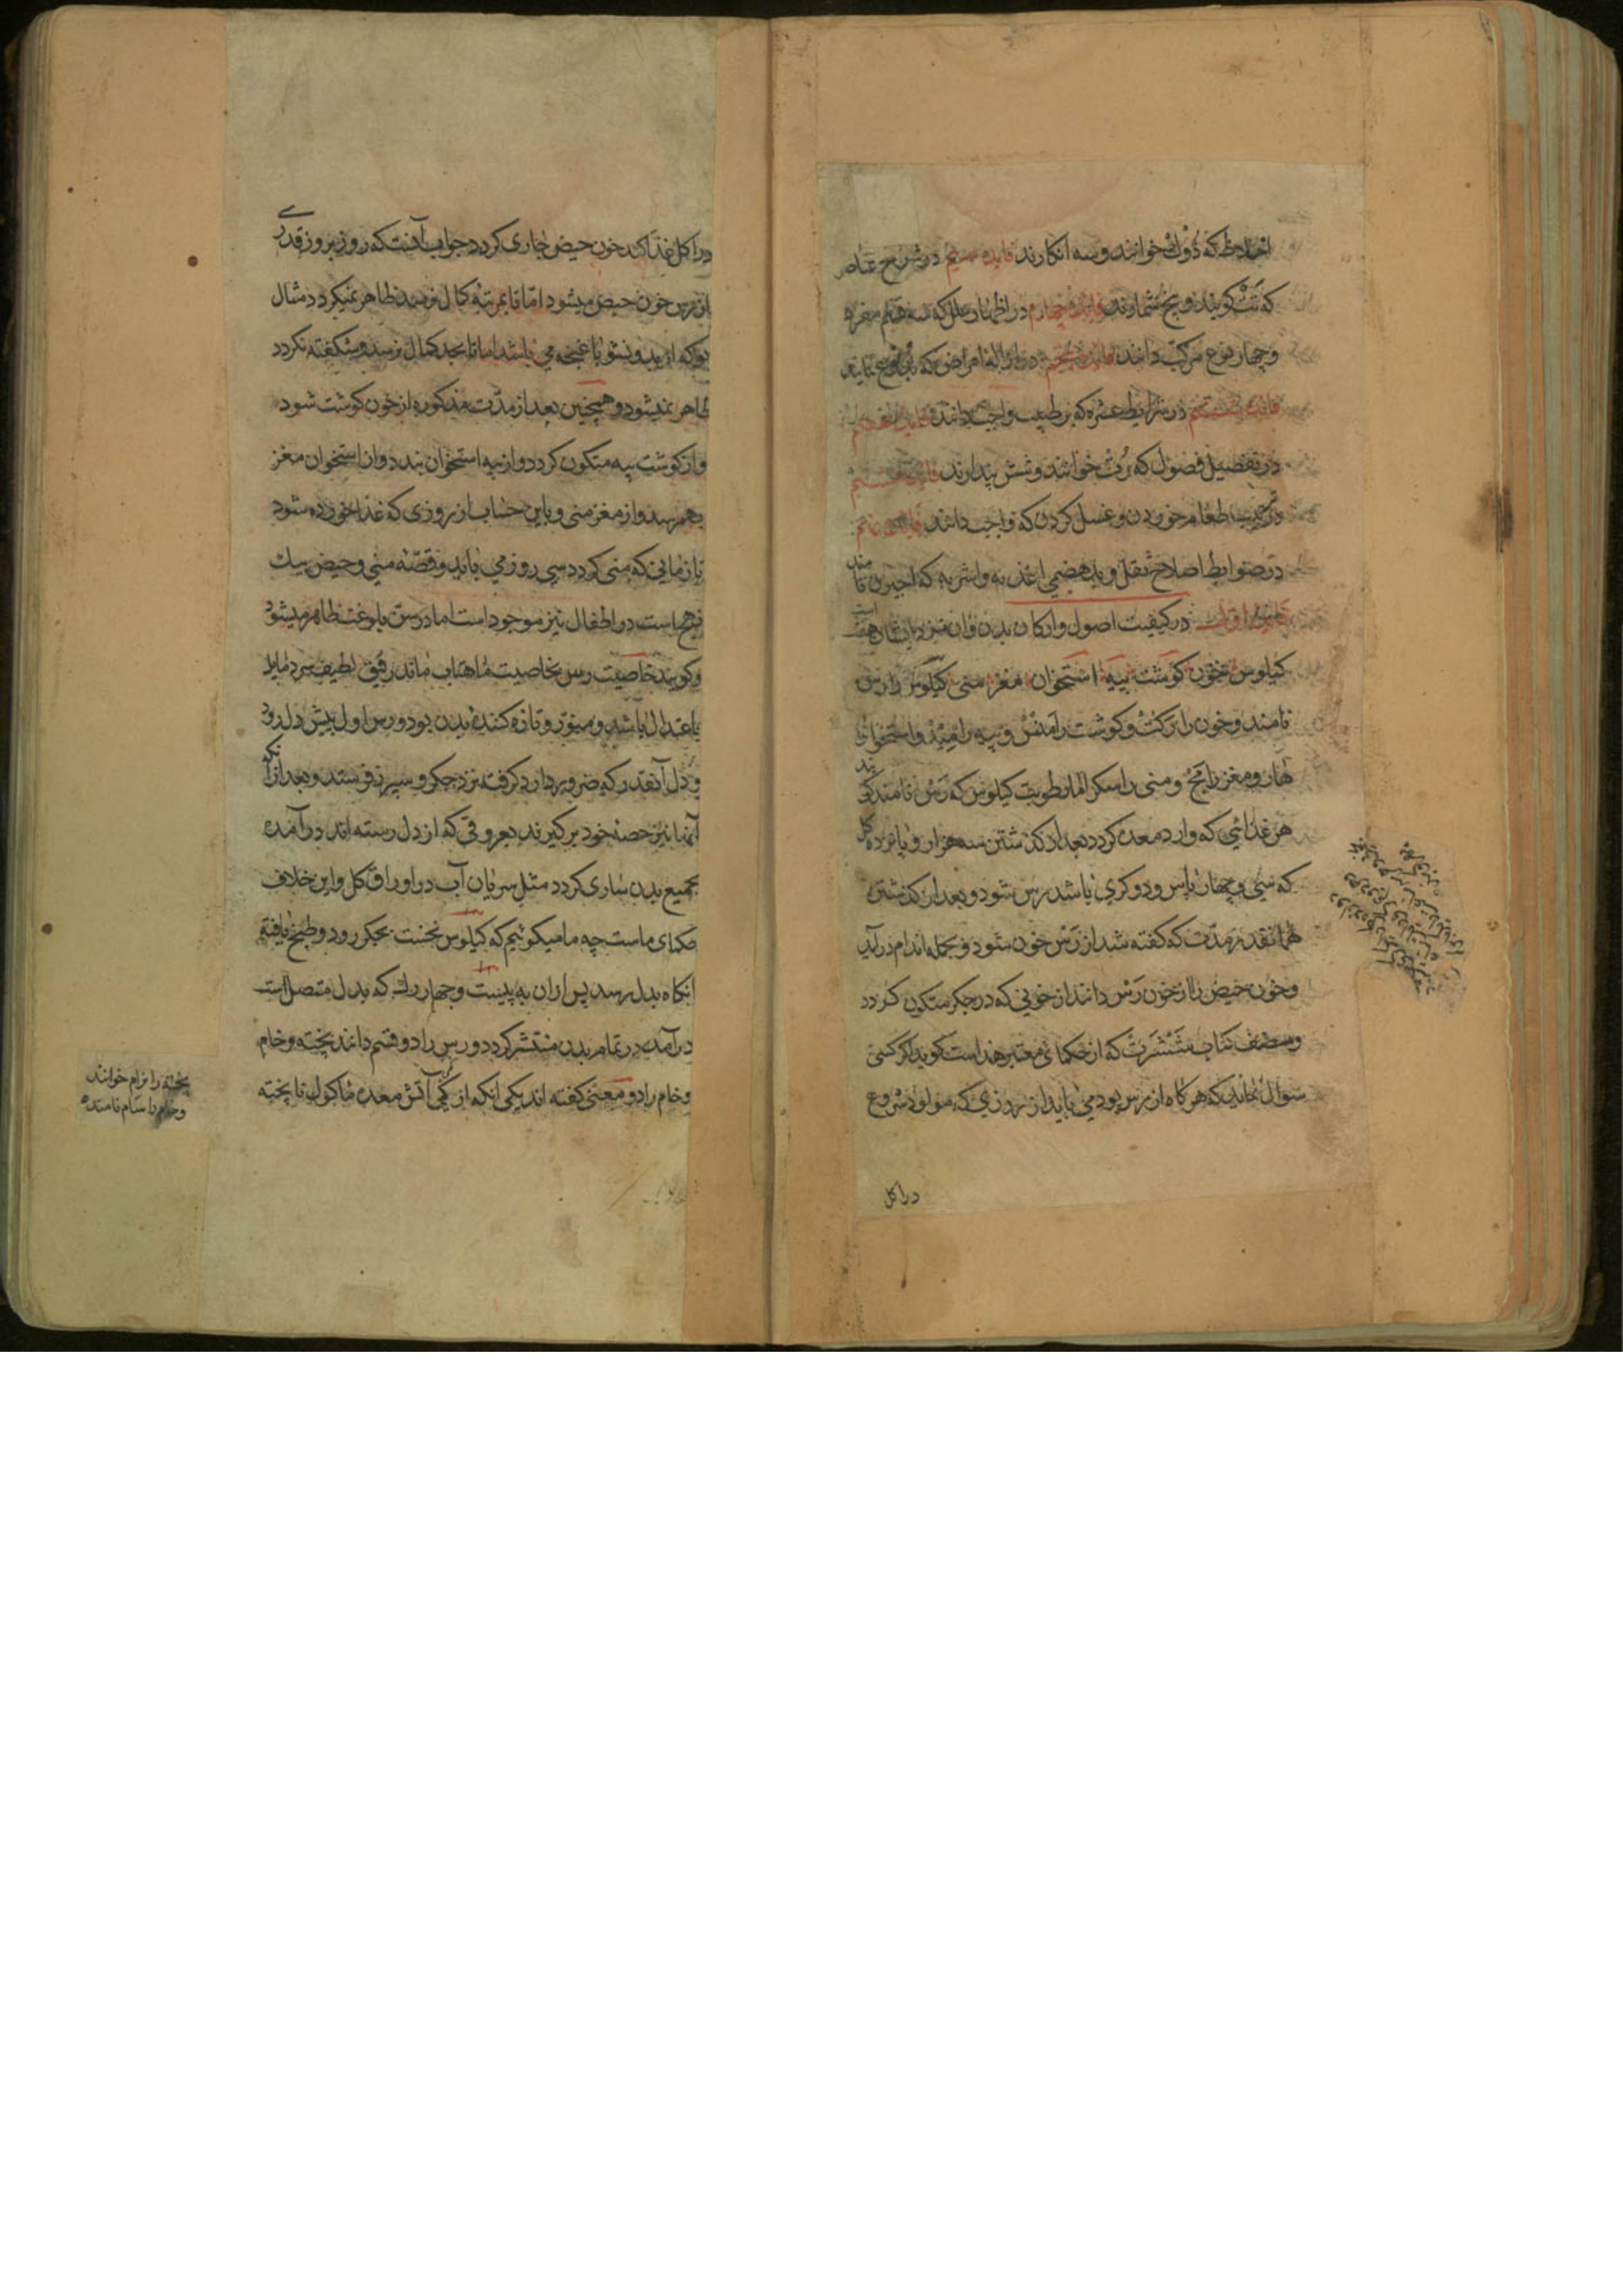 اخلاط که دوک خوانند و سه انکارند فایده سیم در شرح عناصر
که تت کویند و پنج شمارند فایده چهارم در اظهار علل که سه قسم مفرد
و چهار نوع مرکب دانند فایده پنجم در ازالهٔ امراض که
فایده ششم در شرایط عشره که بر طبیب واجب دانند فایده هفتم
در تفضیل فصول که رت خوانند و شش پندارند فایده هشتم
در ترتیب طعام خوردن و غسل کردن که واجب دانند فایده نهم
در ضوابط اصلاح ثقل و بدهضمی اغذیه و اشربه که اجیرن نامند
فایده اول در کیفیت اصول و ارکان بدن و ان نزد ایشان هفت است
کیلوس خون کوشت پیه استخوان مغز منی کیلوس را رس
نامند و خون را رکت و کوشت را مانس و پیه را مید و استخوان را
هار و مغز را مج و منی را سکر اما رطوبت کیلوس که رس نامند کویند
هر غذائی که وارد معده کردد بعد از کذشتن سه هزار و پانزده کل
که سی و چهار پاس و دو کری باشد رس شود و بعد از کذشتن
همانقدر مدت که کفته شد از رس خون شود و بجمله اندام درآید
و خون حیض را از خون رس دانند از خونی که در جکر متکون کردد
و مصنف کتاب که از حکمای معتبر هند است کوید اکر کسی
سوال نماید که هرکاه از رس بود می باید از روزی که مولود شروع
در اکل
در اکل غذا کند خون حیض جاری کردد جواب آنست که روز بروز قدری
از رس خون حیض میشود اما تا بمرتبه کمال نرسد ظاهر نمیکردد مثال
بو که از بدو نشو با غنچه می باشد اما تا بحد کمال نرسد و شکفته نکردد
ظاهر نمیشود و همچنین بعد از مدت مذکوره از خون کوشت شود
و از کوشت پیه متکون کردد و از پیه استخوان بندد و از استخوان مغز
بهم رسد و از مغز منی و باین حساب از روزی که غذا خورده شود
تا زمانی که منی کردد سی روز می باید و قصهٔ منی و حیض بیک
نهج است در اطفال نیز موجود است اما در سن بلوغت ظاهر میشود
و کویند خاصیت رس بخاصیت ماهتاب ماند رقیق لطیف سرد مایل
باعتدال باشد و مقوی و تازه کنندهٔ بدن بود و رس اول پیش دل رود
و دل آنقدر که ضرور دارد کرفته نزد جکر و سپرز فرستد و بعد از آنکه
آنها نیز حصهٔ خود بر کیرند بعروقی که از دل رسته اند درآمده
بجمیع بدن ساری کردد مثل سریان آب در اوراق کل و این خلاف
حکمای ماست چه ما میکوئیم که کیلوس نخست بجکر رود و طبخ یافته
انکاه بدل رسد پس ازان به بیست و چهار رک که بدل متصل است
درآمده در تمام بدن منتشر کردد و رس را دو قسم دانند پخته و خام
و خام را دو معنی کفته اند یکی انکه از کمی آتش معده ماکول ناپخته
پخته را نرام خوانند
و خام را سام نامند